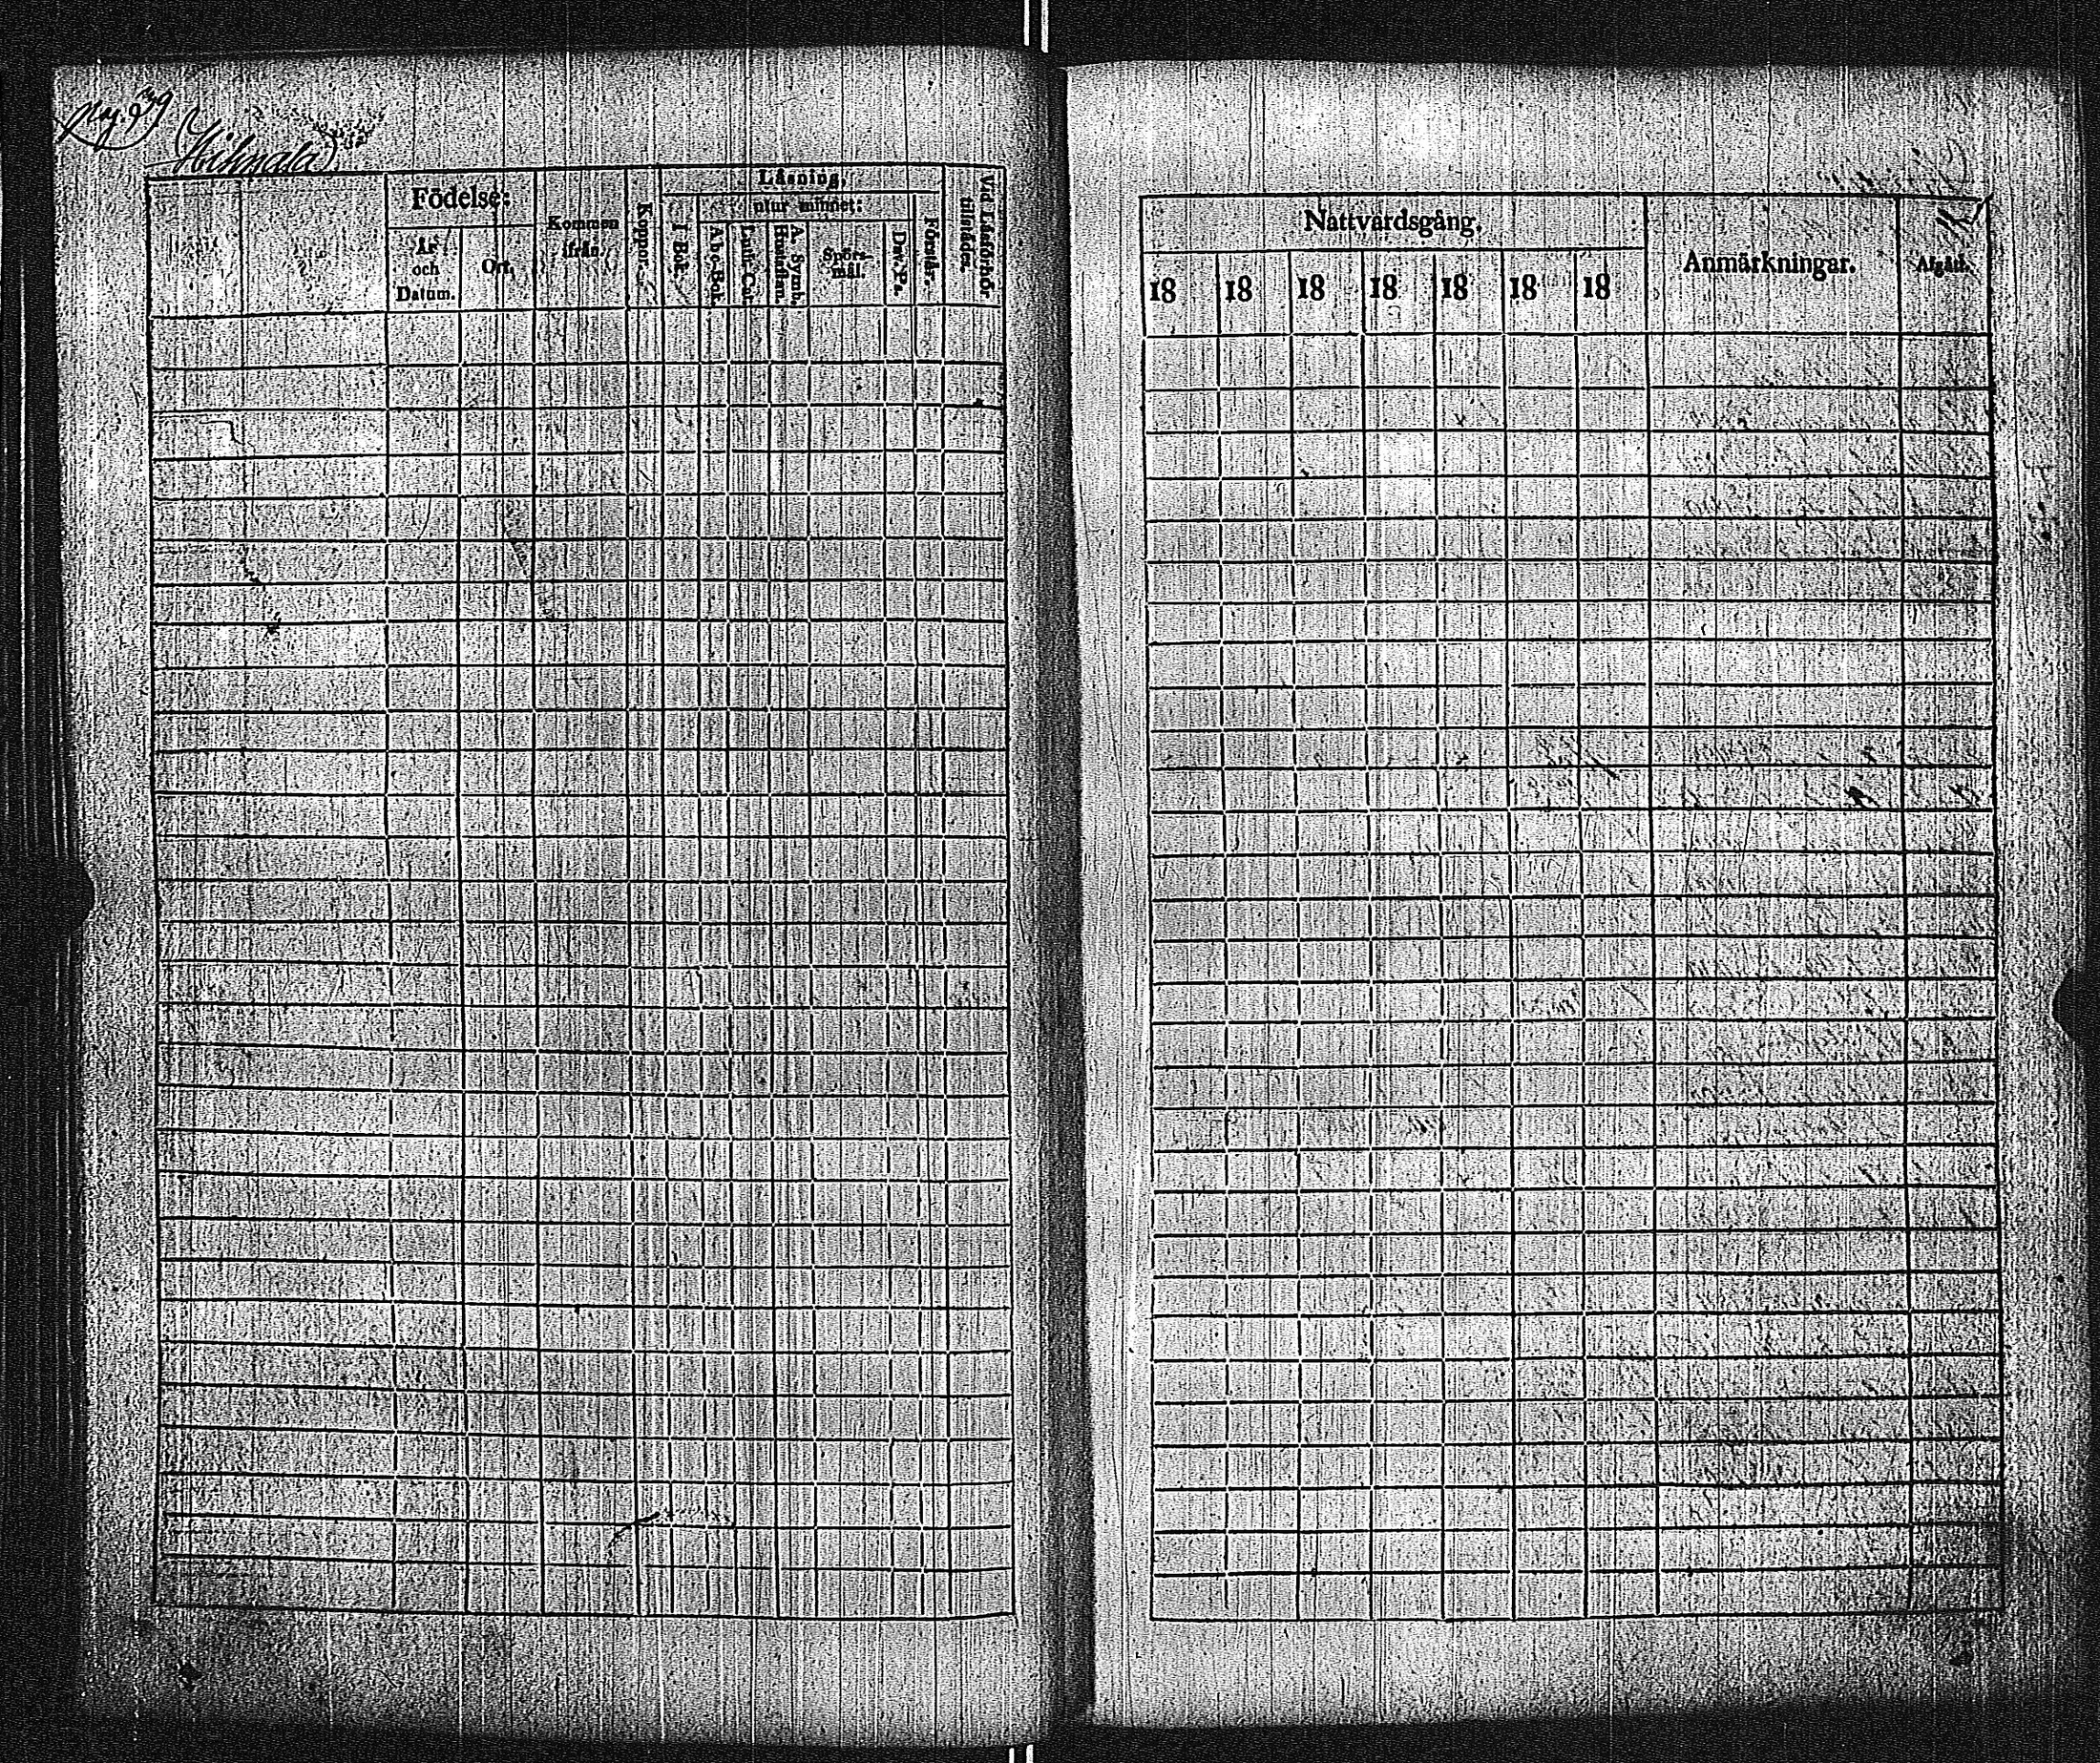 Hihnala
Födelse:
År och Datum.
Ort.
Kommen ifrån.
Koppor.
Läsning,
I Bok.
utur minnet:
A b c-Bok.
Luth. Cat.
A. Symb.
Hustaflan.
Spörs-
mål.
Dav. Ps.
Förstår.
Vid Läsförhör
tillstädes.
Nattvardsgång.
18 18 18 18 18 18 18
Anmärkningar.
Afgått.